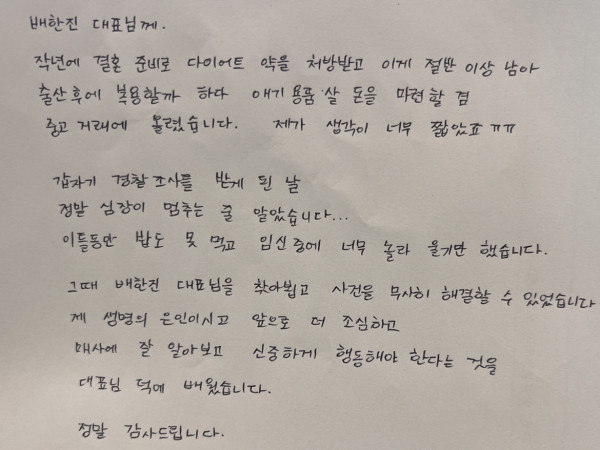 배한진 대표님께.
작년에 결혼 준비로 다이어트 약을 처방받고 이게 절반 이상 남아
출산 후에 복용할까 하다 애기 용품 살 돈을 마련할 겸
중고 거래에 올렸습니다. 제가 생각이 너무 짧았죠 ㅠㅠ
갑자기 경찰 조사를 받게 된 날
정말 심장이 멈추는 줄 알았습니다...
이틀동안 밥도 못 먹고 임신 중에 너무 놀라 울기만 했습니다.
그때 배한진 대표님을 찾아뵙고 사건을 무사히 해결할 수 있었습니다
제 생명의 은인이시고 앞으로 더 조심하고
매사에 잘 알아보고 신중하게 행동해야 한다는 것을
대표님 덕에 배웠습니다.
정말 감사드립니다.